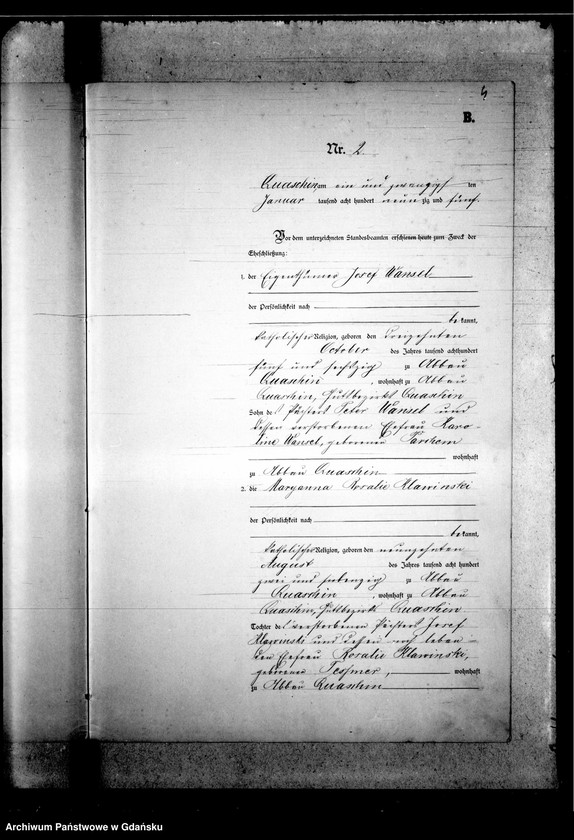 4
B.
Nr. 2
Quaschin am ein und zwanzigsten
Januar tausend acht hundert neunzig und fünf.
Vor dem unterzeichneten Standesbeamten erschienen heute zum Zweck der
Eheschließung:
1. der Eigenthümer Josef Wansel
der Persönlichkeit nach
bekannt,
katholischer Religion, geboren den dreizehnten
October des Jahres tausend achthundert
fünf und sechszig zu Abbau
Quaschin, wohnhaft zu Abbau
Quaschin, Gutsbezirk Quaschin
Sohn des Pächters Peter Wansel und
dessen verstorbenen Ehefrau Karo-
line Wansel, geborenen
wohnhaft
zu Abbau Quaschin
2. die Maryanna Rosalie Klawinski
der Persönlichkeit nach
bekannt,
katholischer Religion, geboren den neunzehnten
August des Jahres tausend acht hundert
zwei und siebenzig zu Abbau
Quaschin, wohnhaft zu Abbau
Quaschin, Gutsbezirk Quaschin
Tochter des verstorbenen Pächters Josef
Klawinski und dessen noch leben-
den Ehefrau Rosalie Klawinski,
geborenen Tessmer, wohnhaft
zu Abbau Quaschin
Archiwum Państwowe w Gdańsku